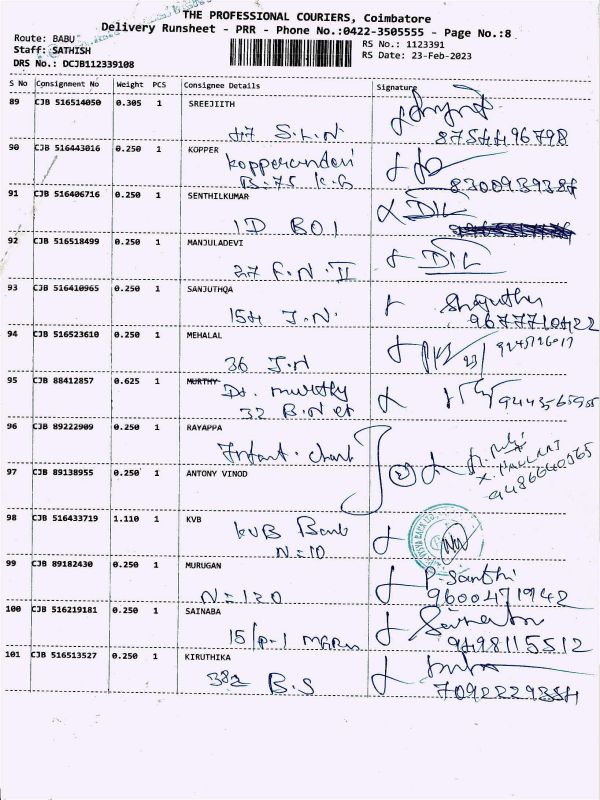 THE PROFESSIONAL COURIERS, Coimbatore
Delivery Runsheet - PRR - Phone No.:0422-3505555 - Page No.:8
Route: BABU
Staff: SATHISH
DRS No.: DCJB112339108
RS No.: 1123391
RS Date: 23-Feb-2023
S No Consignment No Weight PCS Consignee Details Signature
89 CJB 516514050 0.305 1 SREEJIITH
47 S.L.N 8754496798
90 CJB 516443016 0.250 1 KOPPER
B-75 K.G 8300939384
91 CJB 516406716 0.250 1 SENTHILKUMAR
1D BOI DIL
92 CJB 516518499 0.250 1 MANJULADEVI
27 F.N. II DIL
93 CJB 516410965 0.250 1 SANJUTHQA
154 J.N. 9677710422
94 CJB 516523610 0.250 1 MEHALAL
36 J.N
95 CJB 88412857 0.625 1 MURTHY
Dr. Murthy
32 B.N
96 CJB 89222909 0.250 1 RAYAPPA
Infant. 9486640565
97 CJB 89138955 0.250 1 ANTONY VINOD
98 CJB 516433719 1.110 1 KVB
KVB Bank
N=10
99 CJB 89182430 0.250 1 MURUGAN
P. Santhi
N=120 9600471942
100 CJB 516219181 0.250 1 SAINABA
15/p-1 9498115512
101 CJB 516513527 0.250 1 KIRUTHIKA
382 B.S 7092229384